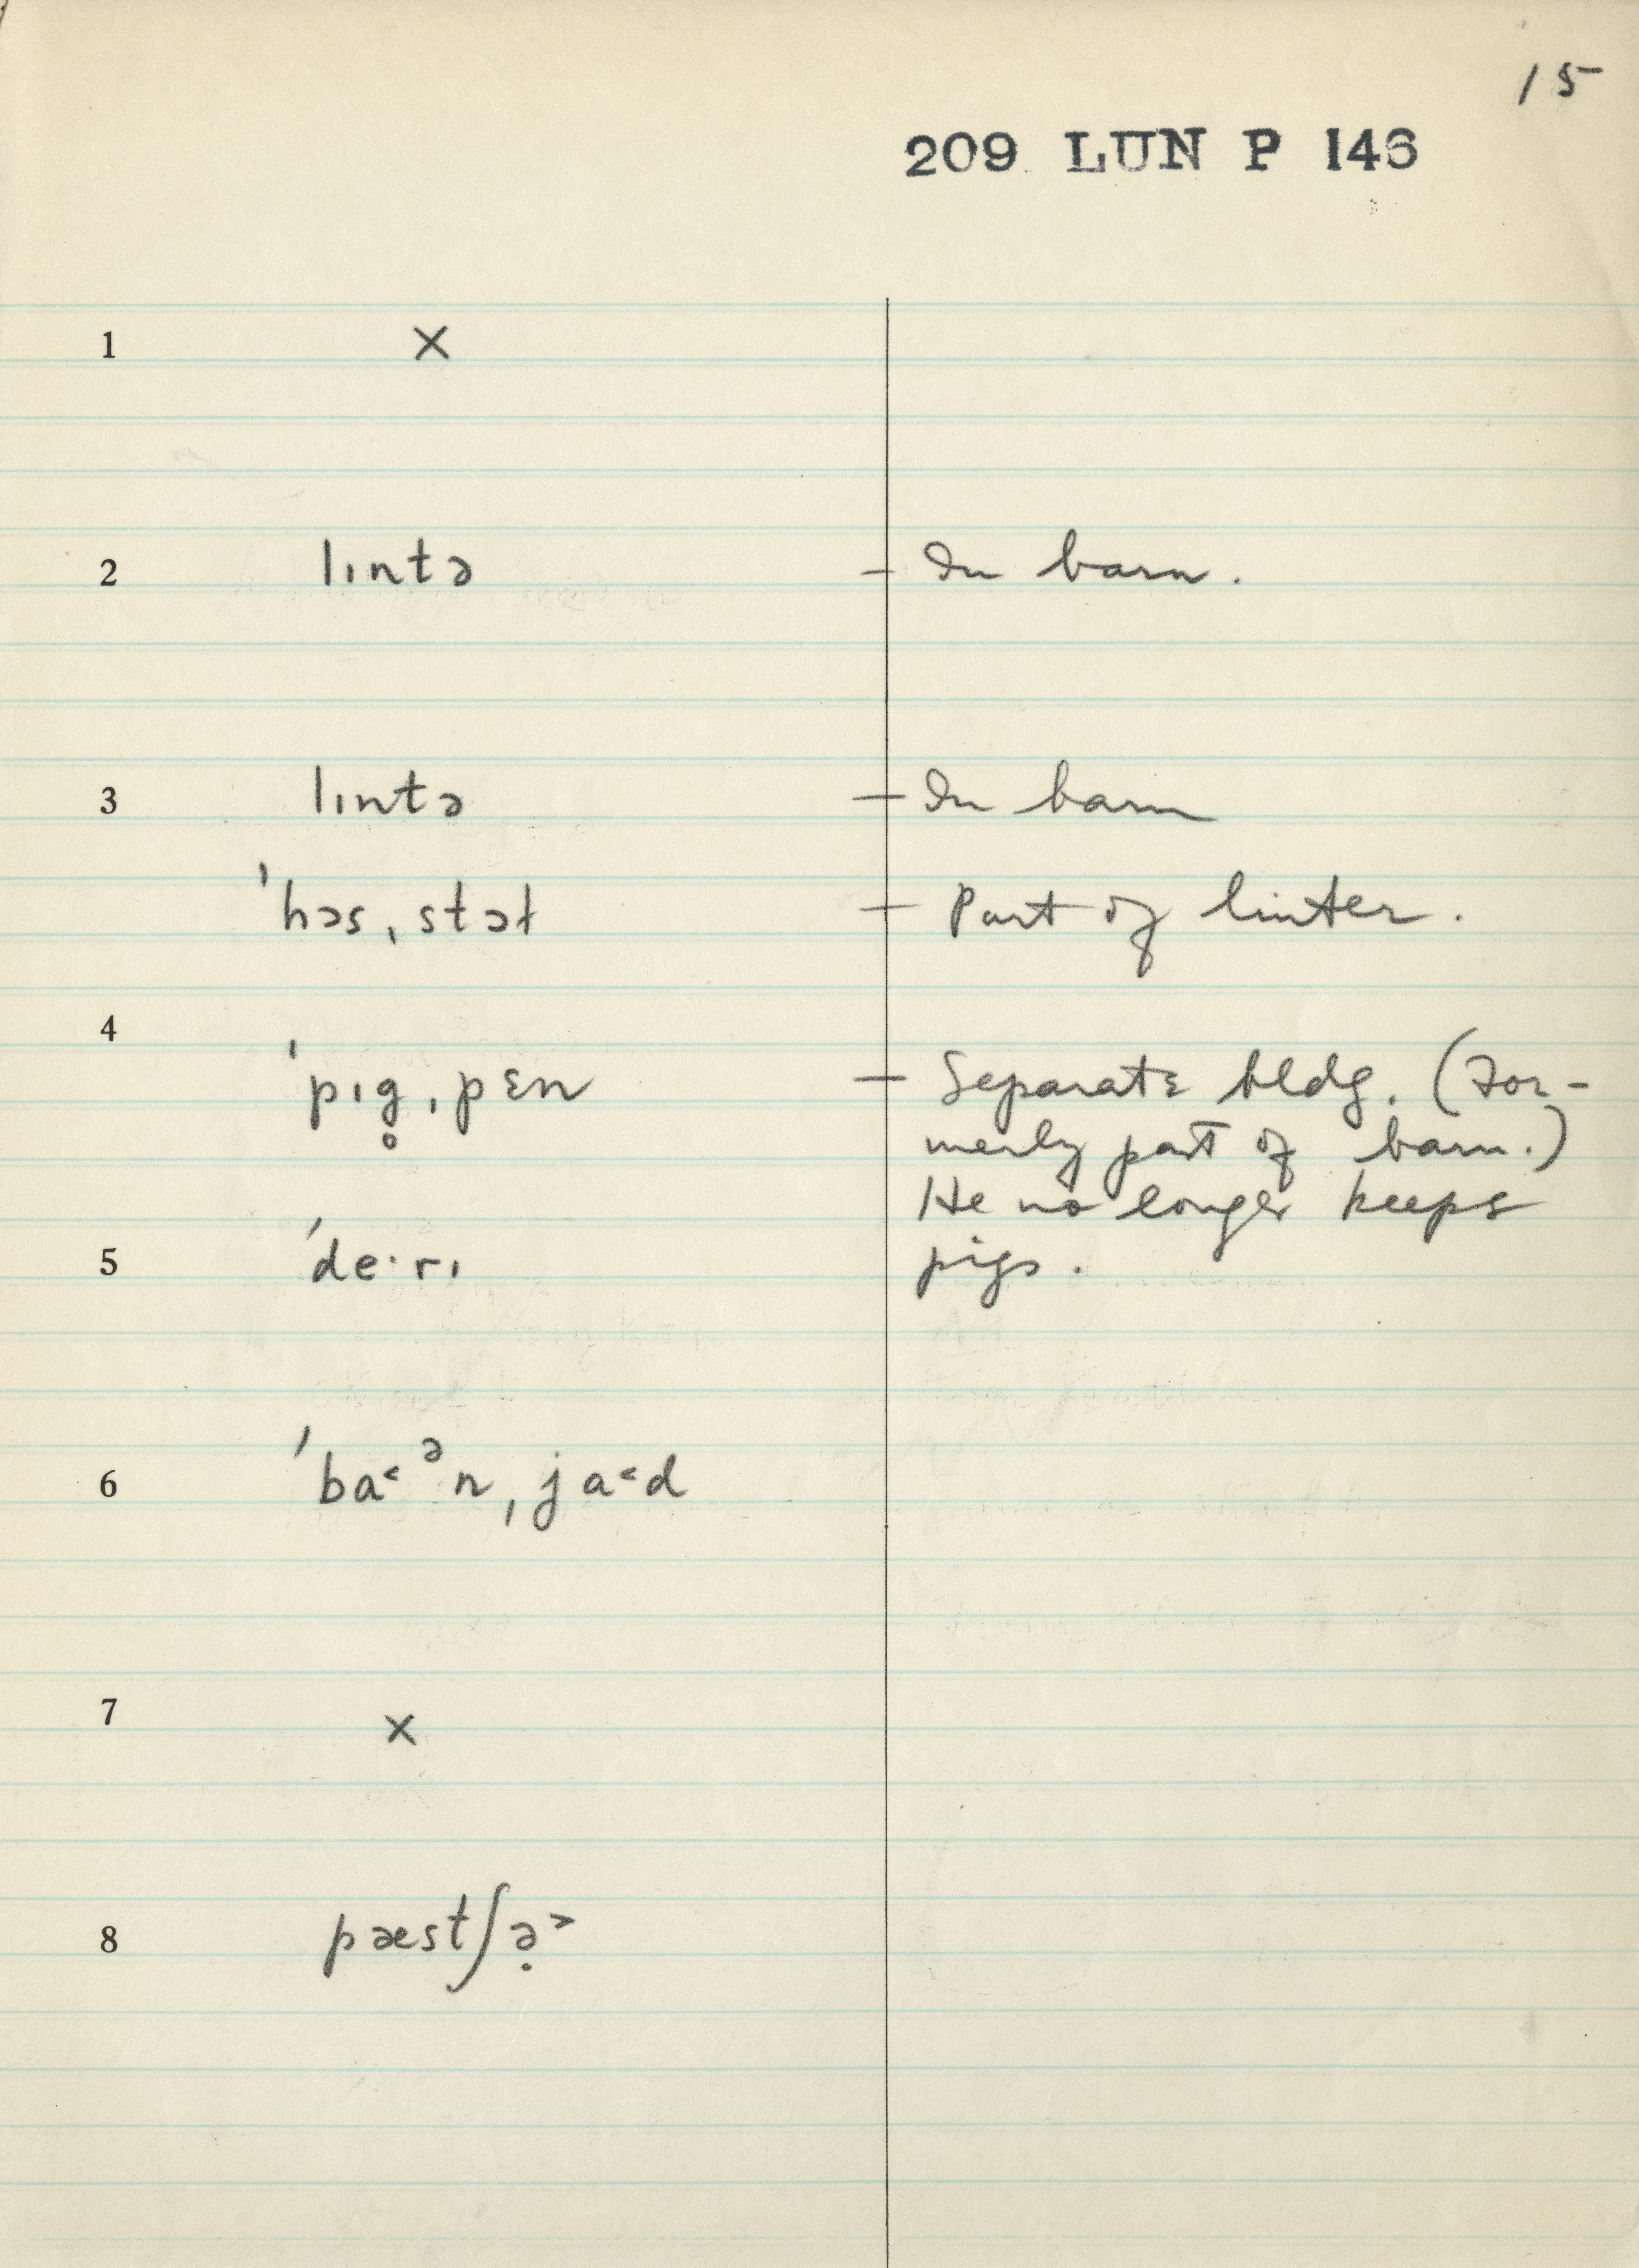 15
209 LUN P 146
1 ×
2 lɪntə – In barn.
3 lɪntə – In barn
ˈhɔsˌstɔɫ – Part of linter.
4
ˈpɪg̥ˌpɛn – Separate bldg. (For-
merly part of barn.)
He no longer keeps
5 ˈde·rɪ pigs.
6 ˈba˂ᵊnˌja˂d
7 ×
8 pæstʃə̣˃